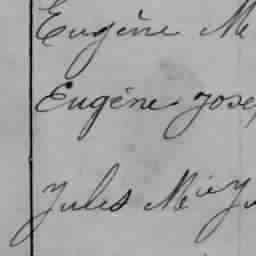 Eugène M
Eugène Jose
Jules M